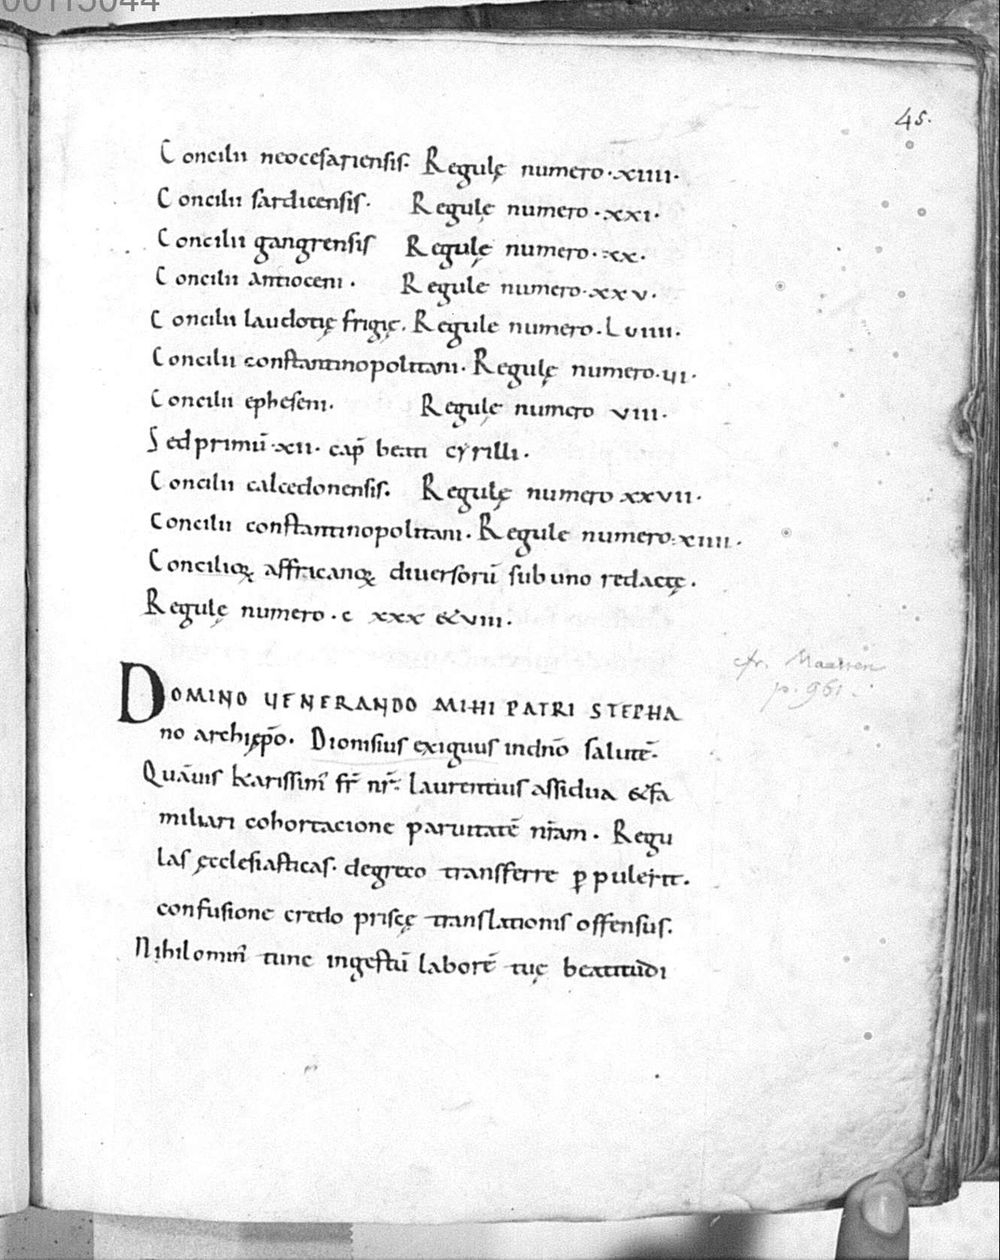 00113044
45.
Concilii neocesariensis. Regulę numero ·xiiii·
Concilii sardicensis. Regulę numero ·xxi·
Concilii gangrensis Regulę numero ·xx·
Concilii antioceni. Regulę numero ·xxv·
Concilii laudotię frigię. Regulę numero. Lviiii.
Concilii constantinopolitani. Regulę numero ·iii·
Concilii epheseni. Regulę numero viii.
Sed primū ·xii· cap̄ beati cyrilli.
Concilii calcedonensis. Regulę numero xxvii.
Concilii constantinopolitani. Regulę numero ·xiiii·
Concilioꝝ affricanoꝝ diuersorū sub uno redactę.
Regulę numero · c xxx &viii.
cfr. Maassen
p. 961.
DOMINO VENERANDO MIHI PATRI STEPHA
no archięp̄o. Dionisius exiguus in dn̄o salutē.
Quāuis karissim' fr̄ nr̄. laurentius assidua &fa
miliari cohortacione paruitatē nr̄am. Regu
las ęcclesiasticas. de greco transferre ꝑpulerit.
confusione credo priscę translationis offensus.
Nihilomin' tunc ingestū laborē tuę beatitudi